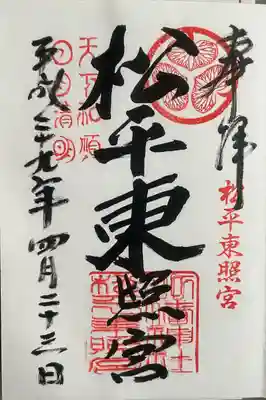 奉拝
松平東照宮
松平東照宮
天下和順
日月清明
平成二十九年 四月二十三日